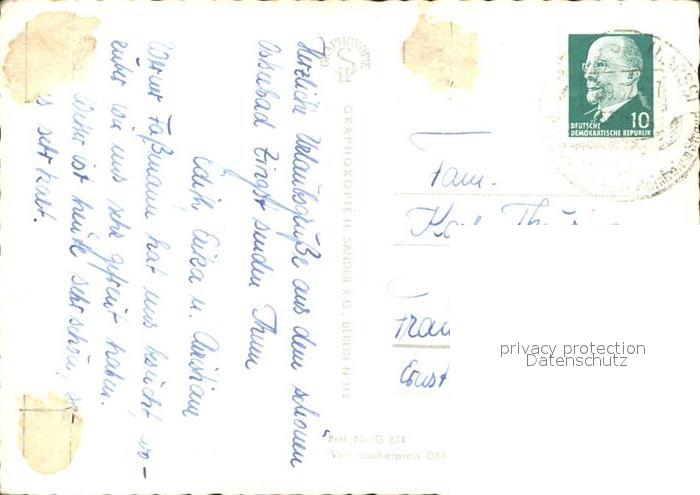 Herzliche Urlaubsgrüße aus dem schönen
Ostseebad Zingst senden Ihnen
Edith, Erika u. Christiane
Werner Faßmann hat uns besucht, wo-
rüber wir uns sehr gefreut haben.
Wetter ist heute sehr schön,
sehr kalt.
GRAPHOKOPIE
GRAPHOKOPIE H. SANDER KG., BERLIN N 113
Best.-Nr. G 874
Verbraucherpreis DM
10
DEUTSCHE
DEMOKRATISCHE REPUBLIK
Fam.
Ernst
privacy protection
Datenschutz